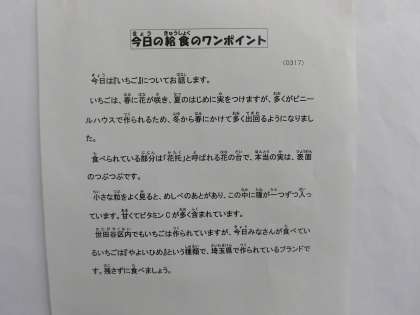 今日の給食のワンポイント
(0317)
今日は『いちご』についてお話します。
いちごは、春に花が咲き、夏のはじめに実をつけますが、多くがビニー
ルハウスで作られるため、冬から春にかけて多く出回るようになりまし
た。
食べられている部分は「花托」と呼ばれる花の台で、本当の実は、表面
のつぶつぶです。
小さな粒をよく見ると、めしべのあとがあり、この中に種が一つずつ入っ
ています。甘くてビタミンCが多く含まれています。
世田谷区内でもいちごは作られていますが、今日みなさんが食べてい
るいちごは『やよいひめ』という種類で、埼玉県で作られているブランドで
す。残さずに食べましょう。